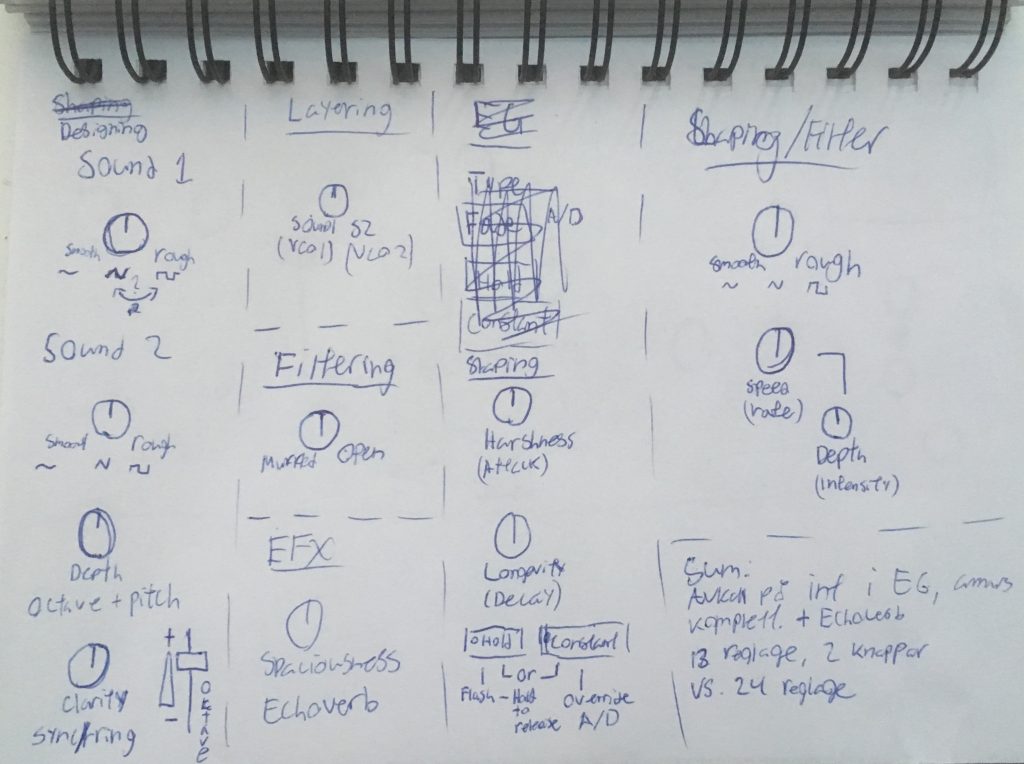 Shaping
Designing
Sound 1
Smooth rough
?
Sound 2
Smooth rough
Depth
Octave + pitch
Clarity
Sync/ring
+ 1
-
OKTAVE
Layering
Sound1 S2
(VCO1) (VCO2)
Filtering
Muffled Open
EFX
Spaciousness
Echoverb
EG
Type
Fade A/D
Hold
Constant
Shaping
Harshness
(Attack)
Longevity
(DECAY)
Hold Constant
or
Flash - Hold to release
Override A/D
Shaping/Filter
smooth rough
Speed
(rate)
Depth
(intensity)
Sum:
på int i EG, annars
komplett. + Echoverb
13 reglage, 2 knappar
vs. 24 reglage